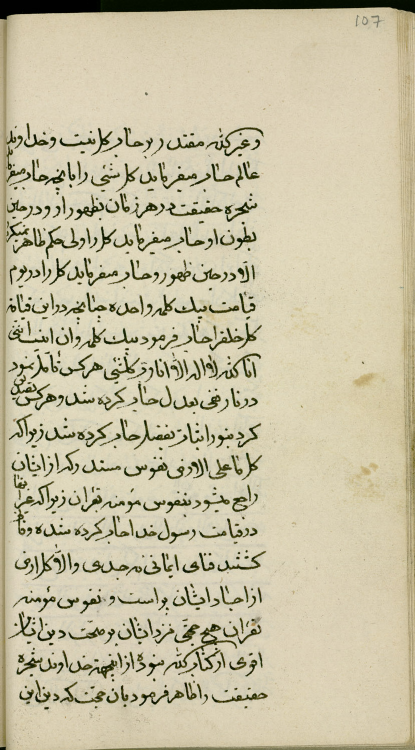 107
وغیر الله مقتدر بر حساب کل نیست و خداوند
عالم حساب میفرماید کل شیئ را بانچه حساب میفرماید
شجره حقیقت در هر زمان بظهور او و در حین
بطون او حساب میفرماید کل را ولی حکم ظاهر نمیگردد
الا در حین ظهور و حساب میفرماید کل را در یوم
قیامت بیک کلمه واحده چنانچه در این قیامة
کل خلق را حساب فرمود بیک کلمه و ان اینست اننی
انا الله لا اله الا انا رب کلشئ هر کس تامل نمود
در نار نفی بعدل حساب کرده شد و هر کس تصدیق
کرد بنور اثبات بفضل حساب کرده شد زیرا که
کل ما علی الارض بنفوس مستدرکه از ایشان
راجع میشود بنفوس مؤمنه بقران زیرا که غیر انها
در قیامت رسول خدا حساب کرده شده و فانی
گشتند فنای ایمانی نه جسدی والا کل ارض
از اجساد ایشان پر است و نفوس مؤمنه
بقران هیچ حجتی نزد ایشان بر صحت دین ایشان
اقوی از کتاب الله نبوده از اینجهة خداوند شجره
حقیقت را ظاهر فرمود بان حجت که دین این